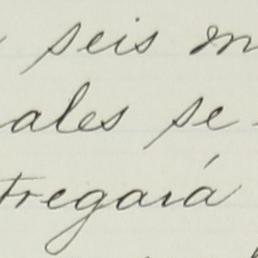 seis m
ales se
tregará